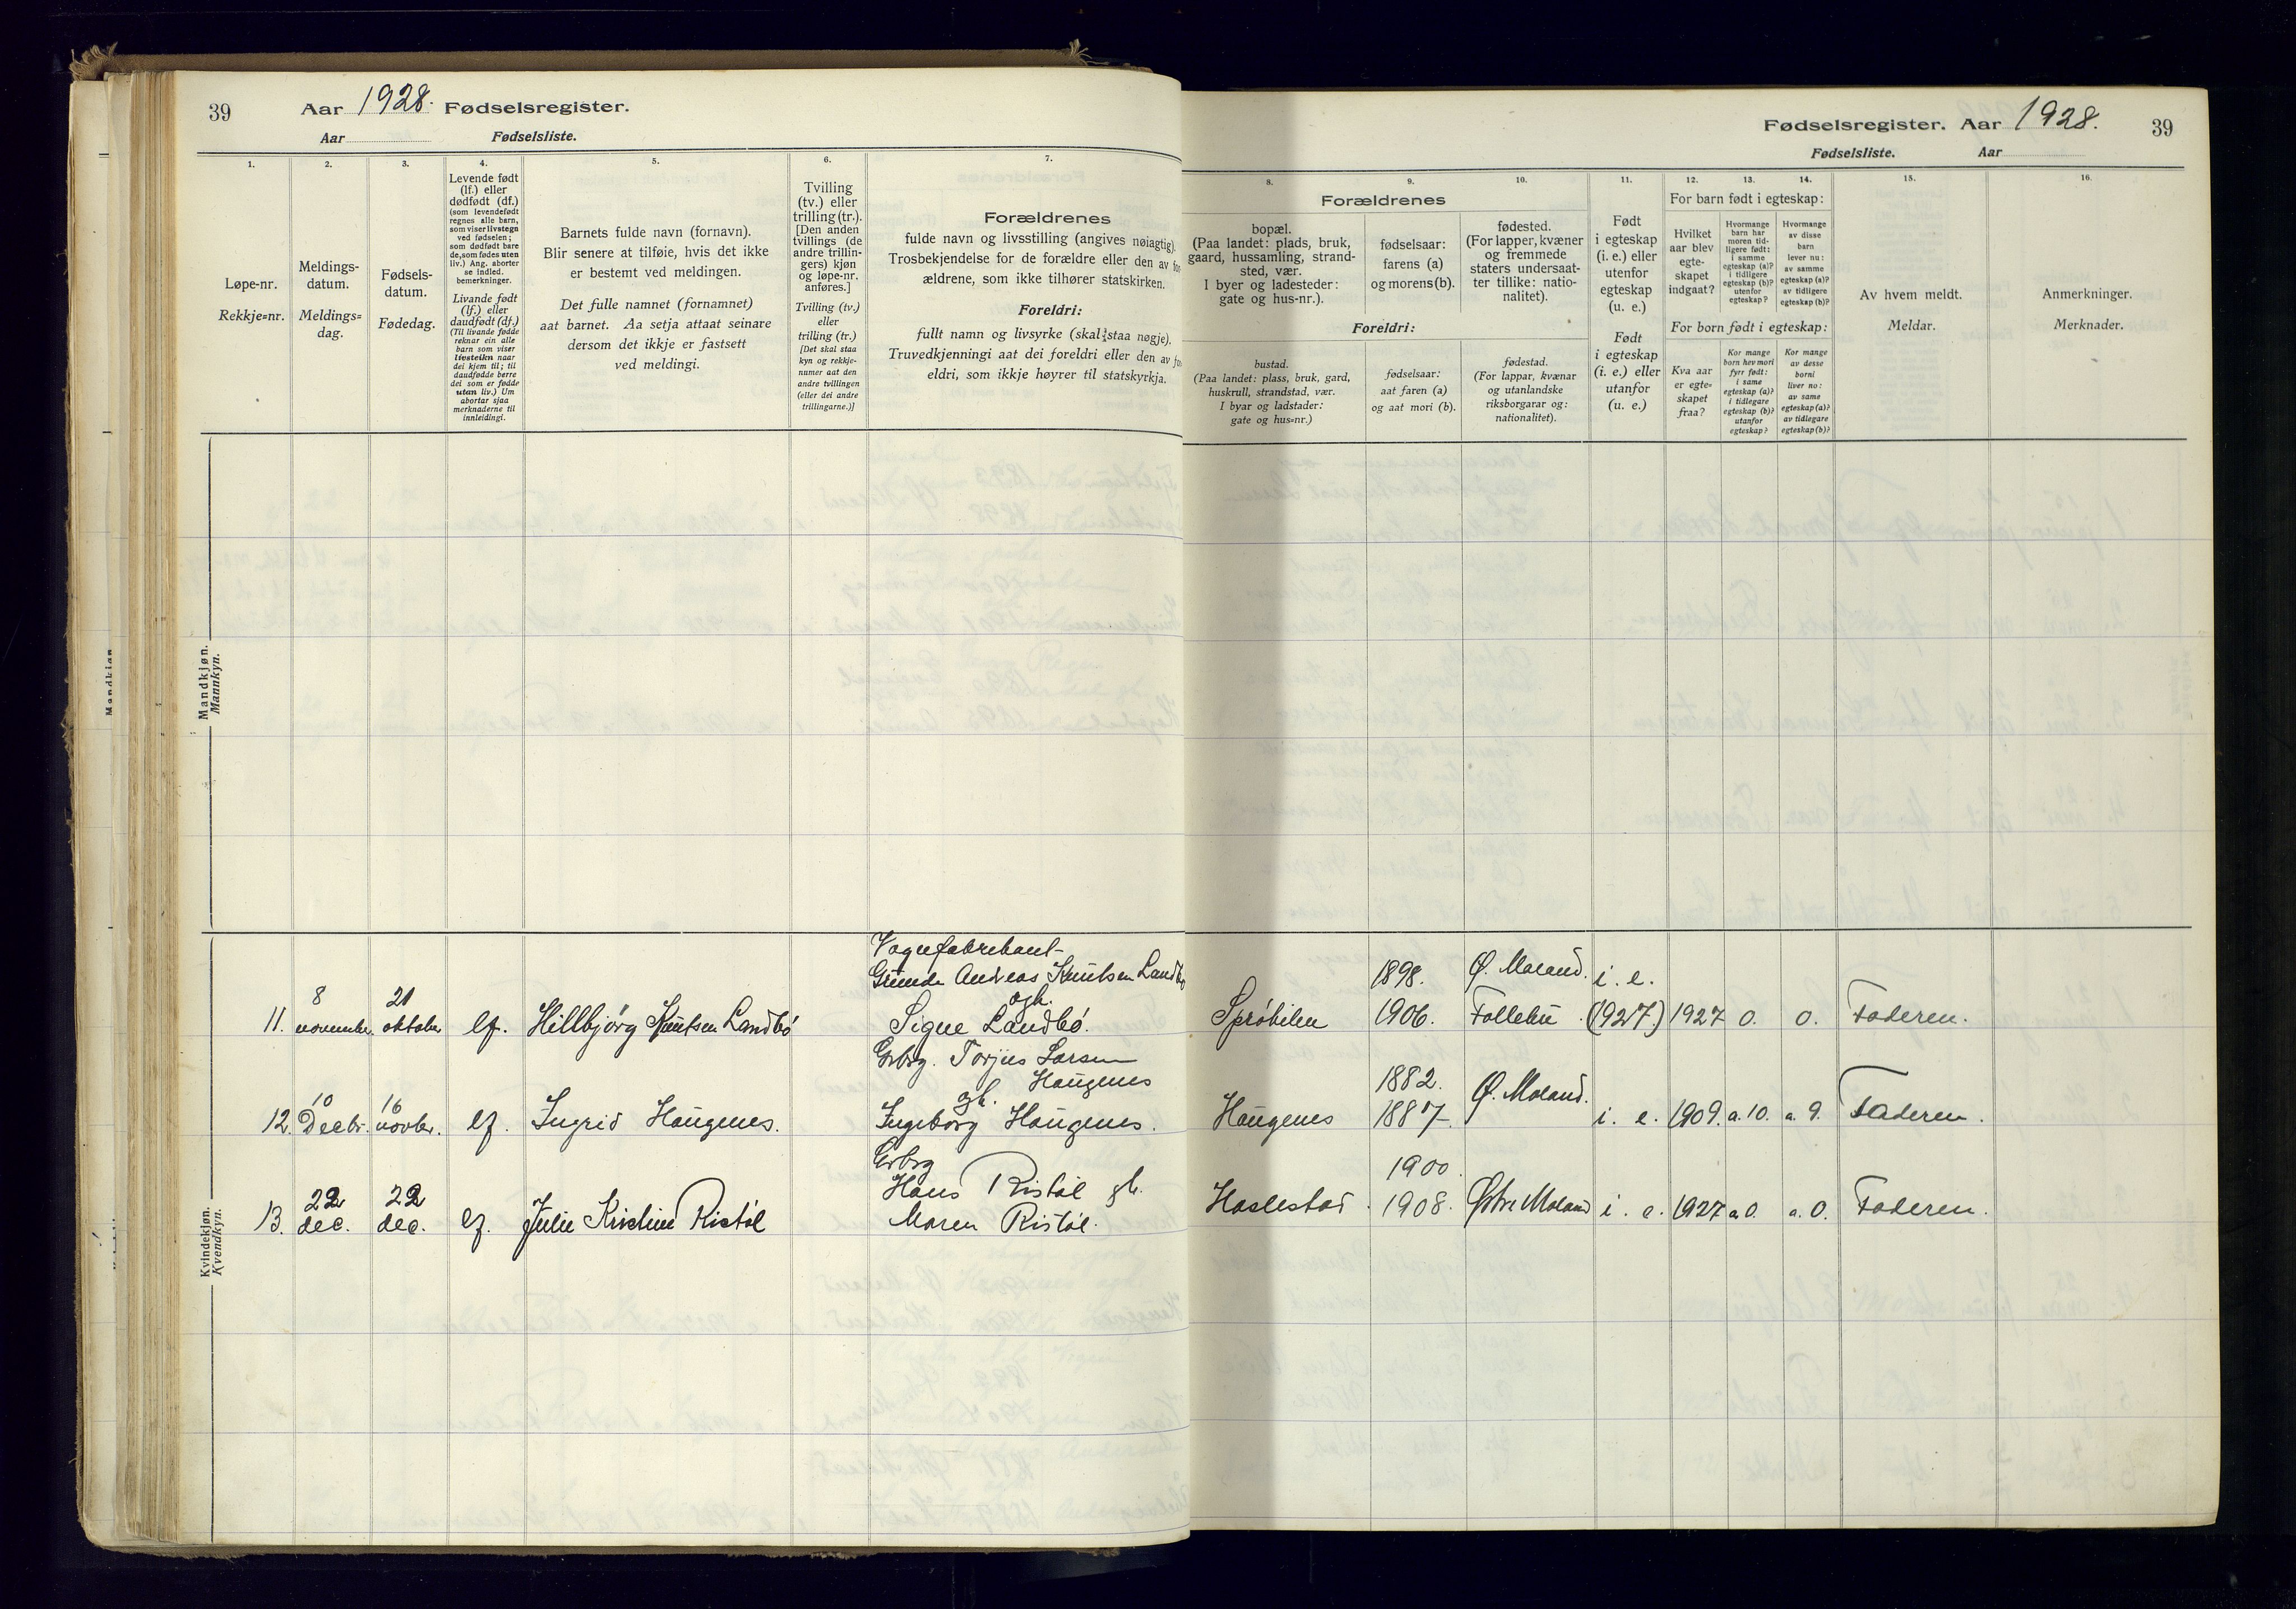 39
Aar 1928. Fødselsregister.
Aar Fødselsliste.
1.
2.
3.
4.
5.
6.
7.
Løpe-nr.
Rekkje=nr.
Meldings-
datum.
Meldings=
dag.
Fødsels-
datum.
Fødedag.
Levende født
(lf.) eller
dødfødt (df.)
(som levendefødt
regnes alle barn,
som viser livstegn
ved fødselen;
som dødfødt bare
de, som fødes uten
liv.) Ang. aborter
se indled.
bemerkninger.
Livande født
(lf.) eller
daudfødt (df.)
(Til livande fødde
reknar ein alle
barn som viser
livsteikn naar
dei kjem til; til
daudfødde berre
dei som er fødde
utan liv.) Um
abortar sjaa
merknaderne til
innleidingi.
Barnets fulde navn (fornavn).
Blir senere at tilføie, hvis det ikke
er bestemt ved meldingen.
Det fulle namnet (fornamnet)
aat barnet. Aa setja attaat seinare
dersom det ikkje er fastsett
ved meldingi.
Tvilling
(tv.) eller
trilling (tr.).
[Den anden
tvillings (de
andre trillin-
gers) kjøn
og løpe-nr.
anføres.]
Tvilling (tv.)
eller
trilling (tr.)
[Det skal staa
kyn og rekkje-
numer aat den
andre tvillingen
(eller dei andre
trillingarne.)]
Forældrenes
fulde navn og livsstilling (angives nøiagtig).
Trosbekjendelse for de forældre eller den av for
ældrene, som ikke tilhører statskirken.
Foreldri:
fullt namn og livsyrke (skal staa nøgje).
Truvedkjenningi aat dei foreldri eller den av for
eldri, som ikkje høyrer til statskyrkja.
Mandkjøn.
Mannkyn.
Vognfabrikant
Gunde Andreas Knutsen Landbø
ogh.
8 21
11. november. oktober lf. Hillbjørg Knutsen Landbø Signe Landbø.
Grbrg. Torjus Larsen
Haugenes
ogh.
10 16
12. Decbr. novbr. lf. Ingrid Haugenes. Ingeborg Haugenes.
Grbrg
Hans Ristøl gh.
22 22
13. dec. dec. lf. Julie Kristine Ristøl Maren Ristøl.
Kvindekjøn.
Kvendkyn.
Fødselsregister. Aar 1928. 39
Fødselsliste. Aar
8.
9.
10.
11.
12.
13.
14.
15.
16.
Forældrenes
bopæl.
(Paa landet: plads, bruk,
gaard, hussamling, strand-
sted, vær.
I byer og ladesteder:
gate og hus-nr.).
fødselsaar:
farens (a)
og morens (b).
fødested.
(For lapper, kvæner
og fremmede
staters undersaat-
ter tillike: natio-
nalitet).
Foreldri:
bustad.
(Paa landet: plass, bruk, gard,
huskrull, strandstad, vær.
I byar og ladstader:
gate og hus=nr.)
fødselsaar:
aat faren (a)
og aat mori (b).
fødestad.
(For lappar, kvænar
og utanlandske
riksborgarar og:
nationalitet).
Født
i egteskap
(i. e.) eller
utenfor
egteskap
(u. e.)
Født
i egteskap
(i. e.) eller
utanfor
(u. e.)
For barn født i egteskap:
Hvilket
aar blev
egte-
skapet
indgaat?
Hvormange
barn har
moren tid-
ligere født:
i samme
egteskap (a)?
i tidligere
egteskap (b)?
utenfor
egteskap?
Hvormange
av disse
barn
lever nu:
av samme
egteskap (a)?
av tidligere
egteskap (b)?
For born født i egteskap:
Kva aar
er egte=
skapet
fraa?
Kor mange
born hev mori
fyrr født:
i same
egteskap (a)?
i tidlegare
egteskap (b)?
utanfor
egteskap?
Kor mange
av desse
borni
liver no:
av same
egteskap (a)?
av tidlegare
egteskap (b)?
Av hvem meldt.
Meldar.
Anmerkninger.
Merknader.
1898. Ø. Moland. i. e.
Sprøkilen 1906. Follebu (1927.) 1927 0. 0. Faderen.
1882. Ø. Moland.
Haugenes 1887. i. e. 1909. a. 10. a. 9. Faderen.
1900.
Haslestad 1908. Østre Moland i. e. 1927 a 0. a. 0. Faderen.